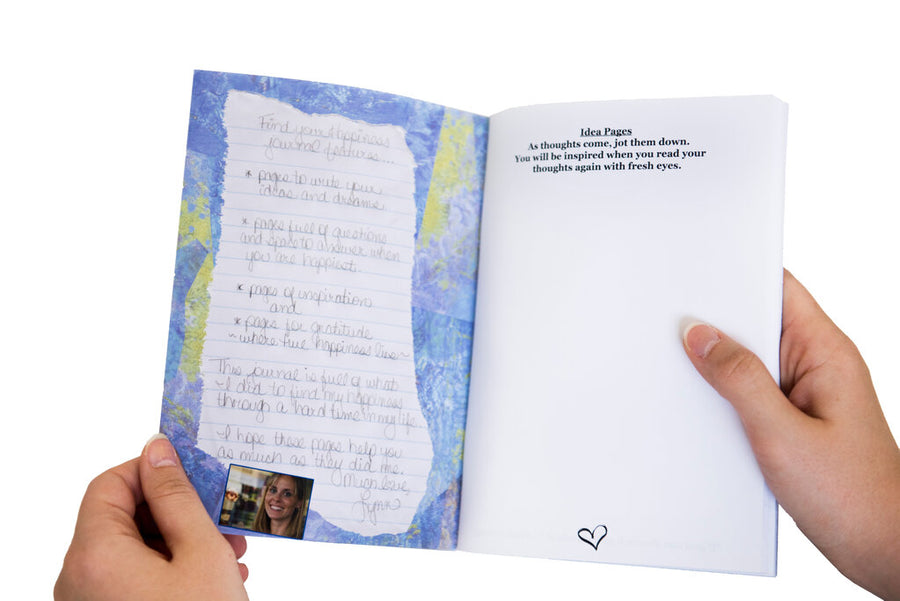 Find your Happiness
journal features...
* pages to write your
ideas and dreams.
* pages full of questions
and space to answer when
you are happiest.
* pages of inspiration
and
* pages for gratitude
~where true happiness lies~
This journal is full of what
I did to find my happiness
through a hard time in my life.
I hope these pages help you
as much as they did me.
Much love,
Lynn
Idea Pages
As thoughts come, jot them down.
You will be inspired when you read your
thoughts again with fresh eyes.